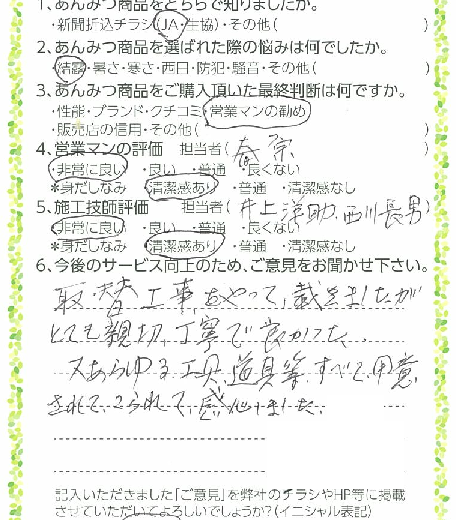 1、あんみつ商品をどちらで知りましたか。
・新聞折込チラシ・JA・生協・その他( )
2、あんみつ商品を選ばれた際の悩みは何でしたか。
・結露・暑さ・寒さ・西日・防犯・騒音・その他( )
3、あんみつ商品をご購入頂いた最終判断は何ですか。
・性能・ブランド・クチコミ・営業マンの勧め
・販売店の信用・その他( )
4、営業マンの評価 担当者( )
・非常に良い ・良い ・普通 ・良くない
*身だしなみ ・清潔感あり ・普通 ・清潔感なし
5、施工技師評価 担当者(井上洋助、西川長男)
・非常に良い ・良い ・普通 ・良くない
*身だしなみ ・清潔感あり ・普通 ・清潔感なし
6、今後のサービス向上のため、ご意見をお聞かせ下さい。
取・替工事をやって、戴きましたが
とても親切、丁寧で良かった。
又あらゆる工具、道具等、すべて、用意
されて、こられて、感心しました。
記入いただきました「ご意見」を弊社のチラシやHP等に掲載
させていただいてよろしいでしょうか?(イニシャル表記)